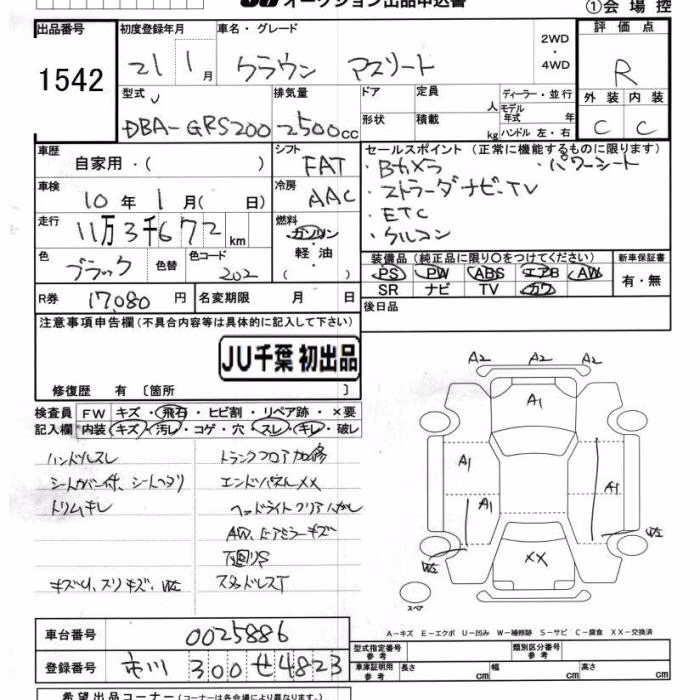 オークション出品申込書
①会場控
出品番号
1542
初度登録年月
21 1月
車名・グレード
クラウン アスリート
2WD・4WD
評価点
R
型式
DBA-GRS200
排気量
2500cc
ドア
形状
定員 人
積載 kg
ディーラー・並行
モデル年式 年
ハンドル 左・右
外装 内装
C C
車歴
自家用・( )
シフト
FAT
セールスポイント(正常に機能するものに限ります)
・Bカメラ ・パワーシート
・ストラーダナビ・TV
・ETC
・クルコン
車検
10年 1月( 日)
冷房
AAC
走行
11万3千672km
燃料
ガソリン
軽油
( )
色
ブラック
色替
色コード
202
装備品(純正品に限り〇をつけてください)
PS PW ABS エアB AW
SR ナビ TV カワ
新車保証書
有・無
R券 17,080円
名変期限 月 日
後日品
注意事項申告欄(不具合内容等は具体的に記入して下さい)
JU千葉 初出品
修復歴 有〔箇所 〕
検査員記入欄
FW キズ・飛石・ヒビ割・リペア跡・×要
内装 キズ・汚レ・コゲ・穴・スレ・キレ・破レ
ハンドルスレ
トランクフロア加修
エンドパネルXX
トリムキレ
ヘッドライトクリアハガレ
下廻りS
スタッドレスT
A2 A2 A2
A1
A1 A1 A1
XX
スペア
A-キズ E-エクボ U-凹み W-補修跡 S-サビ C-腐食 XX-交換済
車台番号
0025886
登録番号
市川 300 せ 4823
型式指定番号 参考
類別区分番号 参考
車庫証明用 参考
長さ cm
幅 cm
高さ cm
希望出品コーナー(コーナーは各会場により異なります。)